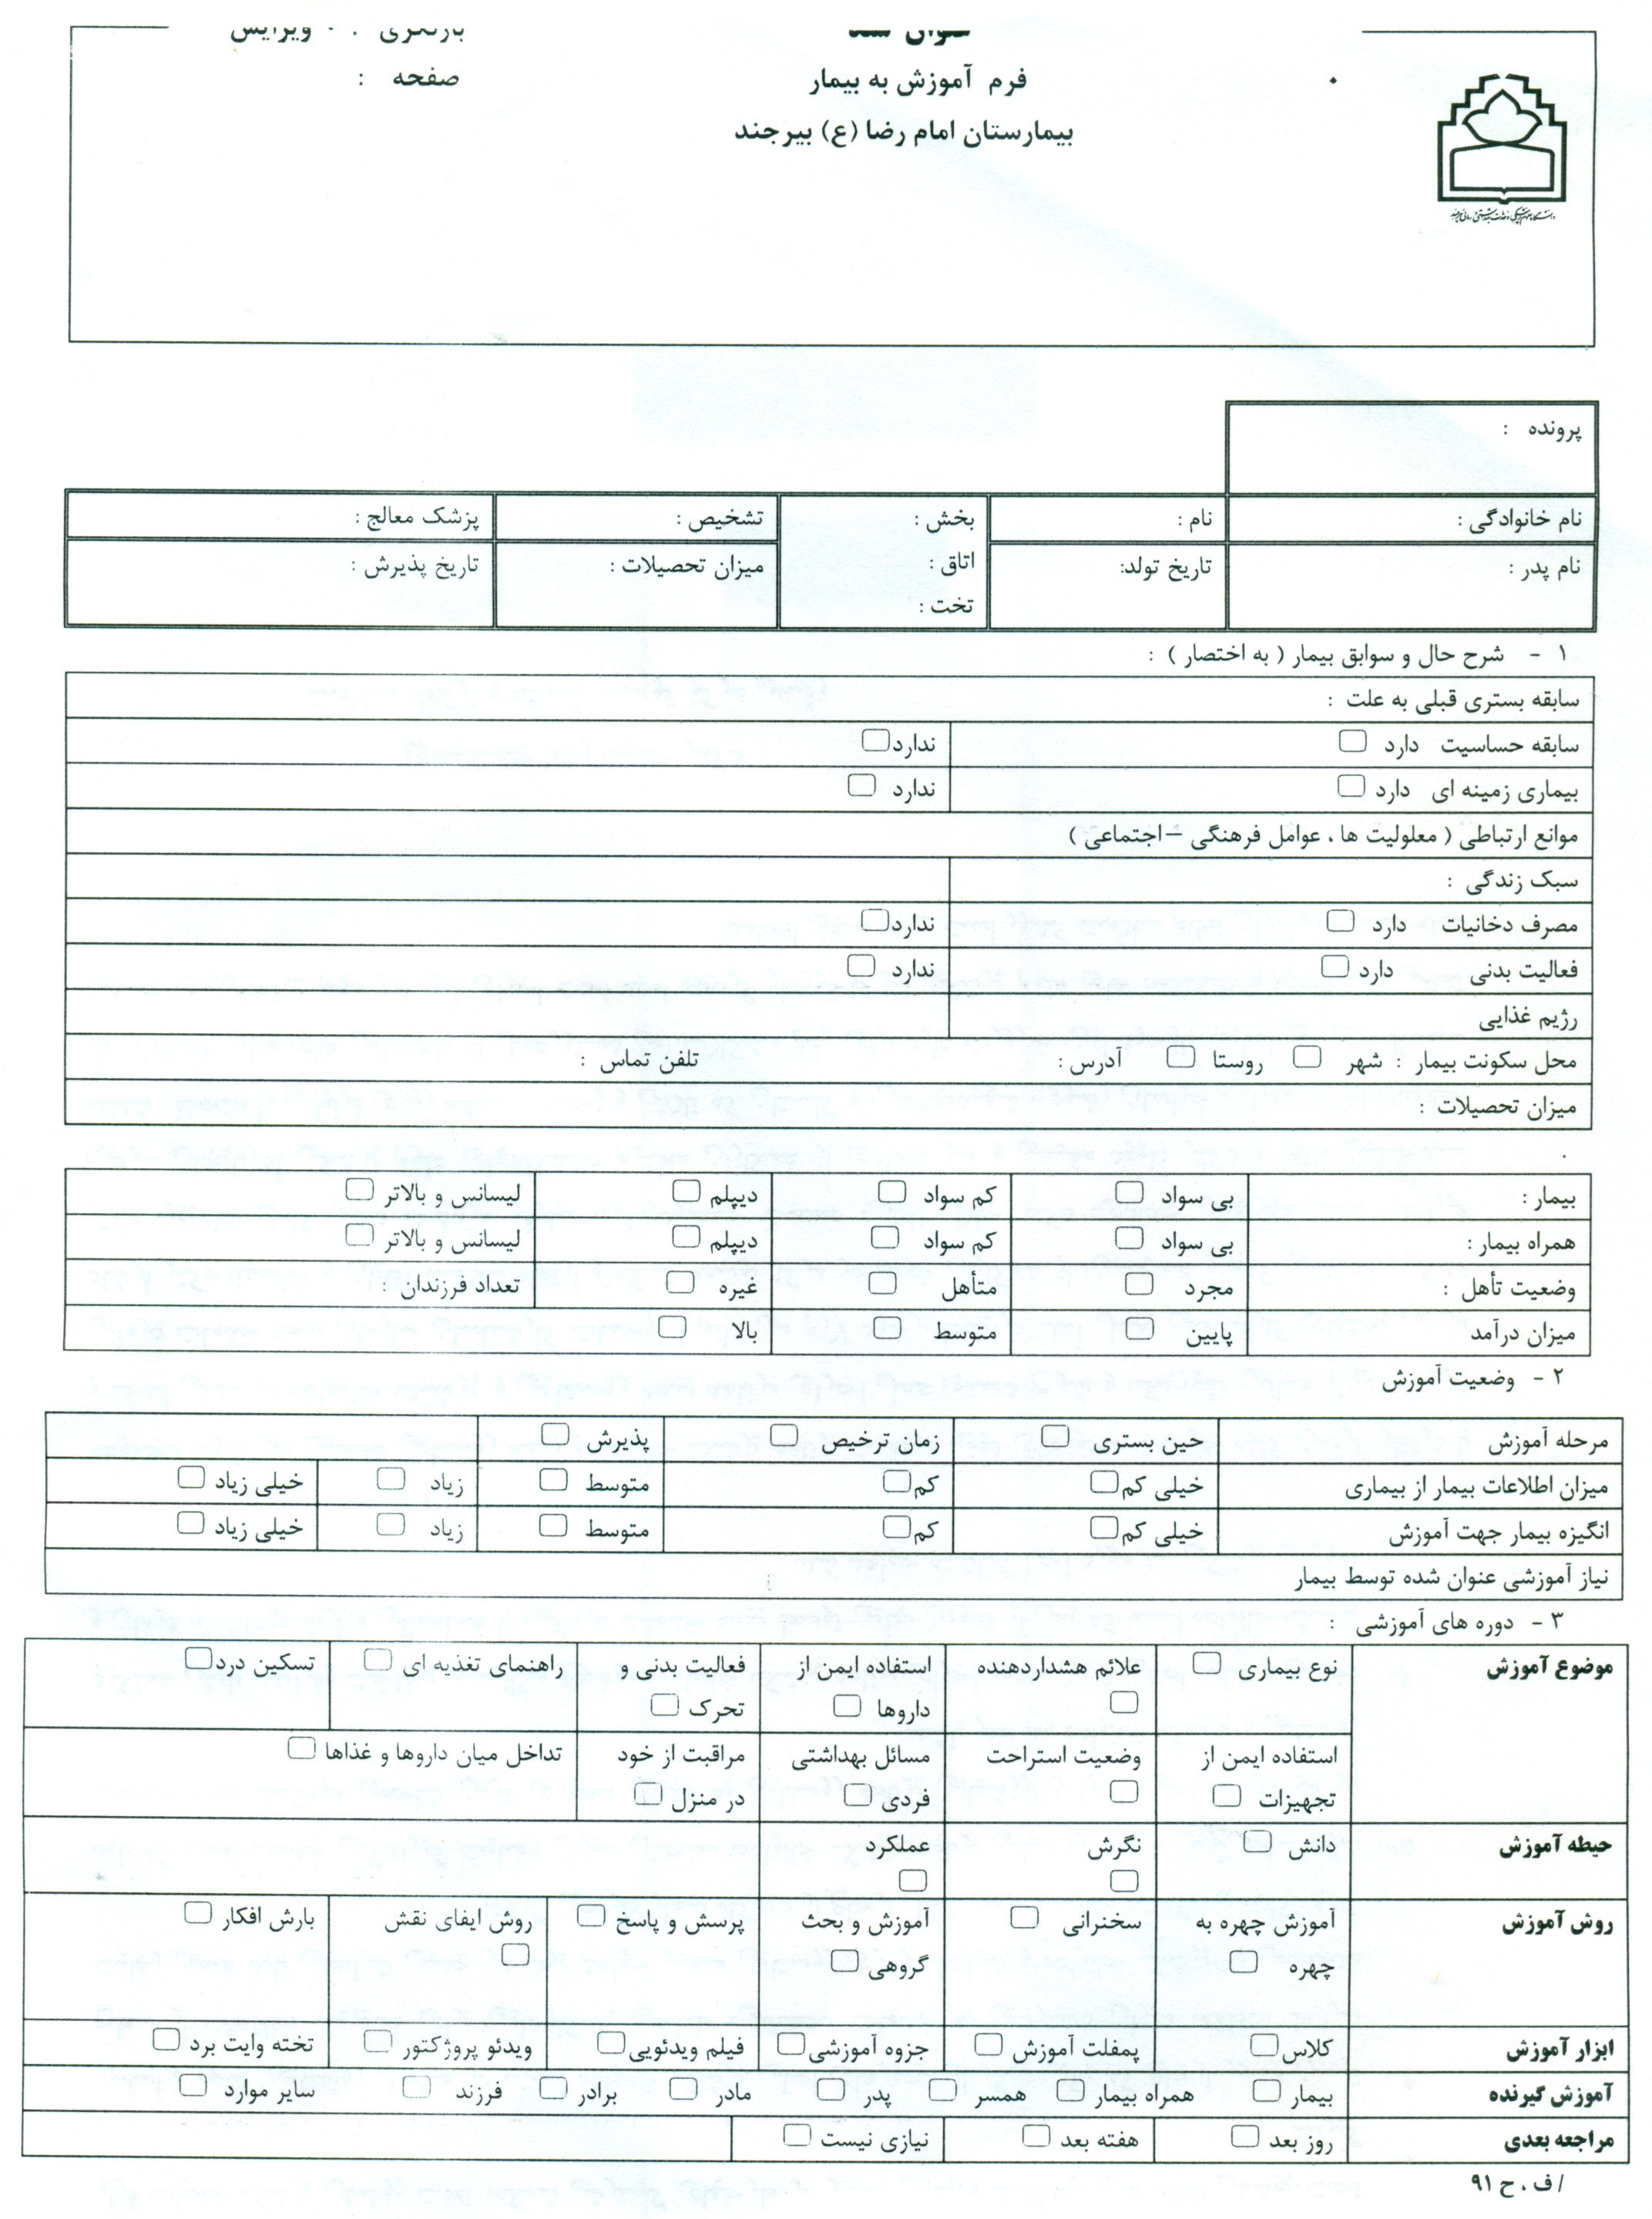 بازنگری : ۰ ویرایش
فرم آموزش به بیمار
صفحه :
بیمارستان امام رضا (ع) بیرجند
پرونده :
نام خانوادگی : نام : بخش : تشخیص : پزشک معالج :
نام پدر : تاریخ تولد: اتاق : میزان تحصیلات : تاریخ پذیرش :
تخت :
۱ - شرح حال و سوابق بیمار ( به اختصار ) :
سابقه بستری قبلی به علت :
سابقه حساسیت دارد ندارد
بیماری زمینه ای دارد ندارد
موانع ارتباطی ( معلولیت ها ، عوامل فرهنگی – اجتماعی )
سبک زندگی :
مصرف دخانیات دارد ندارد
فعالیت بدنی دارد ندارد
رژیم غذایی
محل سکونت بیمار : شهر روستا آدرس : تلفن تماس :
میزان تحصیلات :
بیمار : بی سواد کم سواد دیپلم لیسانس و بالاتر
همراه بیمار : بی سواد کم سواد دیپلم لیسانس و بالاتر
وضعیت تأهل : مجرد متأهل غیره تعداد فرزندان :
میزان درآمد پایین متوسط بالا
۲ - وضعیت آموزش
مرحله آموزش حین بستری زمان ترخیص پذیرش
میزان اطلاعات بیمار از بیماری خیلی کم کم متوسط زیاد خیلی زیاد
انگیزه بیمار جهت آموزش خیلی کم کم متوسط زیاد خیلی زیاد
نیاز آموزشی عنوان شده توسط بیمار
۳ - دوره های آموزشی :
موضوع آموزش نوع بیماری علائم هشداردهنده استفاده ایمن از فعالیت بدنی و راهنمای تغذیه ای تسکین درد
داروها تحرک
استفاده ایمن از وضعیت استراحت مسائل بهداشتی مراقبت از خود تداخل میان داروها و غذاها
تجهیزات فردی در منزل
حیطه آموزش دانش نگرش عملکرد
روش آموزش آموزش چهره به سخنرانی آموزش و بحث پرسش و پاسخ روش ایفای نقش بارش افکار
چهره گروهی
ابزار آموزش کلاس پمفلت آموزش جزوه آموزشی فیلم ویدئویی ویدئو پروژکتور تخته وایت برد
آموزش گیرنده بیمار همراه بیمار همسر پدر مادر برادر فرزند سایر موارد
مراجعه بعدی روز بعد هفته بعد نیازی نیست
/ ف ، ح ۹۱